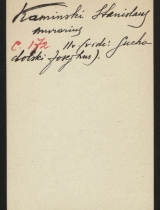 Kaminski Stanislaus
murarius
C. 172 IIv (vidi: Sucho
dolski Josephus).